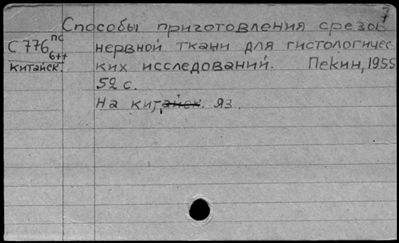 Способы приготовления срезов
С 776 пс
б++
нервной ткани для гистологичес-
китайск.
ких исследований. Пекин, 1955
52 с.
На кит. яз.